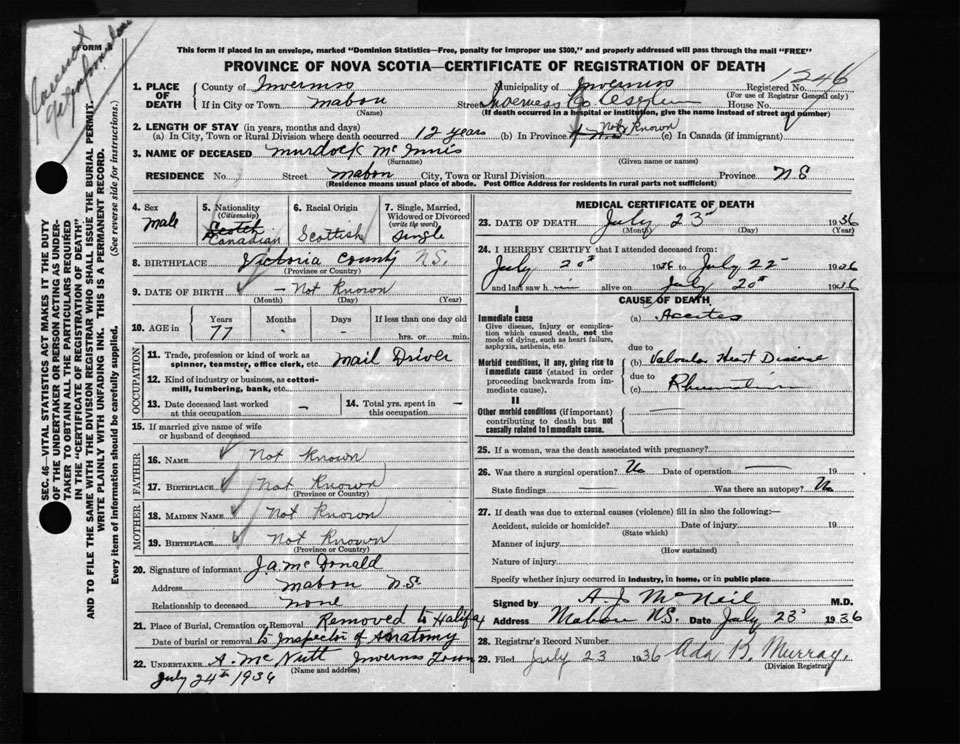 This form if placed in an envelope, marked "Dominion Statistics—Free, penalty for improper use $300," and properly addressed will pass through the mail "FREE"
FORM
PROVINCE OF NOVA SCOTIA—CERTIFICATE OF REGISTRATION OF DEATH
1. PLACE OF DEATH
County of Inverness
Municipality of Inverness
Registered No. 1246
(For use of Registrar General only)
If in City or Town Mabou
(Name)
Street Inverness Co
House No.
(If death occurred in a hospital or institution, give the name instead of street and number)
2. LENGTH OF STAY (in years, months and days)
(a) In City, Town or Rural Division where death occurred 12 years (b) In Province Not Known (c) In Canada (if immigrant)
3. NAME OF DECEASED Murdock McInnis
(Surname) (Given name or names)
RESIDENCE No. Street Mabou City, Town or Rural Division Province N S
(Residence means usual place of abode. Post Office Address for residents in rural parts not sufficient)
4. Sex
Male
5. Nationality
(Citizenship)
Scotch
Canadian
6. Racial Origin
Scottish
7. Single, Married, Widowed or Divorced
(write the word)
Single
8. BIRTHPLACE Victoria County N.S.
(Province or Country)
9. DATE OF BIRTH – Not Known
(Month) (Day) (Year)
10. AGE in
Years Months Days If less than one day old
77 - - hrs. or min.
OCCUPATION
11. Trade, profession or kind of work as spinner, teamster, office clerk, etc. Mail Driver
12. Kind of industry or business, as cotton-mill, lumbering, bank, etc.
13. Date deceased last worked at this occupation –
14. Total yrs. spent in this occupation –
15. If married give name of wife or husband of deceased
FATHER
16. NAME Not Known
17. BIRTHPLACE Not Known
(Province or Country)
MOTHER
18. MAIDEN NAME Not Known
19. BIRTHPLACE Not Known
(Province or Country)
20. Signature of informant J. A. McDonald
Address Mabou N.S.
Relationship to deceased none
21. Place of Burial, Cremation or Removal Removed to Halifax
Date of burial or removal to Inspector of Anatomy
22. UNDERTAKER A. McNutt Inverness Town
(Name and address)
July 24th 1936
MEDICAL CERTIFICATE OF DEATH
23. DATE OF DEATH July 23 1936
(Month) (Day) (Year)
24. I HEREBY CERTIFY that I attended deceased from:
July 20 1936 to July 22 1936
and last saw him alive on July 20 1936
CAUSE OF DEATH
I
Immediate cause
Give disease, injury or complication which caused death, not the mode of dying, such as heart failure, asphyxia, asthenia, etc.
(a)
due to
Morbid conditions, if any, giving rise to immediate cause (stated in order proceeding backwards from immediate cause).
(b) Valvular Heart Disease
due to
(c)
II
Other morbid conditions (if important) contributing to death but not causally related to immediate cause.
25. If a woman, was the death associated with pregnancy?
26. Was there a surgical operation? No Date of operation — 19
State findings — Was there an autopsy? No
27. If death was due to external causes (violence) fill in also the following:—
Accident, suicide or homicide? Date of injury 19
(State which)
Manner of injury
(How sustained)
Nature of injury
Specify whether injury occurred in industry, in home, or in public place
Signed by A. J. McNeil M.D.
Address Mabou N.S. Date July 23 1936
28. Registrar's Record Number
29. Filed July 23 1936 Ada B. Murray.
(Division Registrar)
SEC. 46—VITAL STATISTICS ACT MAKES IT THE DUTY OF THE UNDERTAKER OR PERSON ACTING AS UNDERTAKER TO OBTAIN ALL THE PARTICULARS REQUIRED IN THE "CERTIFICATE OF REGISTRATION OF DEATH" AND TO FILE THE SAME WITH THE DIVISION REGISTRAR WHO SHALL ISSUE THE BURIAL PERMIT.
WRITE PLAINLY WITH UNFADING INK. THIS IS A PERMANENT RECORD.
Every item of information should be carefully supplied. (See reverse side for instructions.)